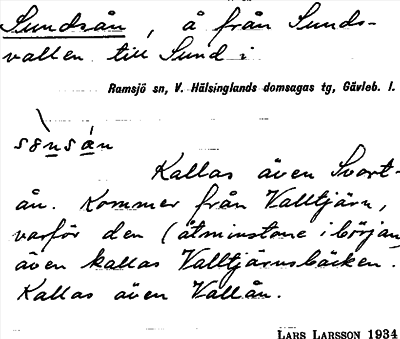 Sundsån, å från Sunds-
vallen till Sund i
Ramsjö sn, V. Hälsinglands domsagas tg, Gävleb. l.
Kallas även Svart-
ån. Kommer från Valltjärn,
varför den (åtminstone i början
även kallas Valltjärnsbäcken.
Kallas även Vallån.
LARS LARSSON 1934